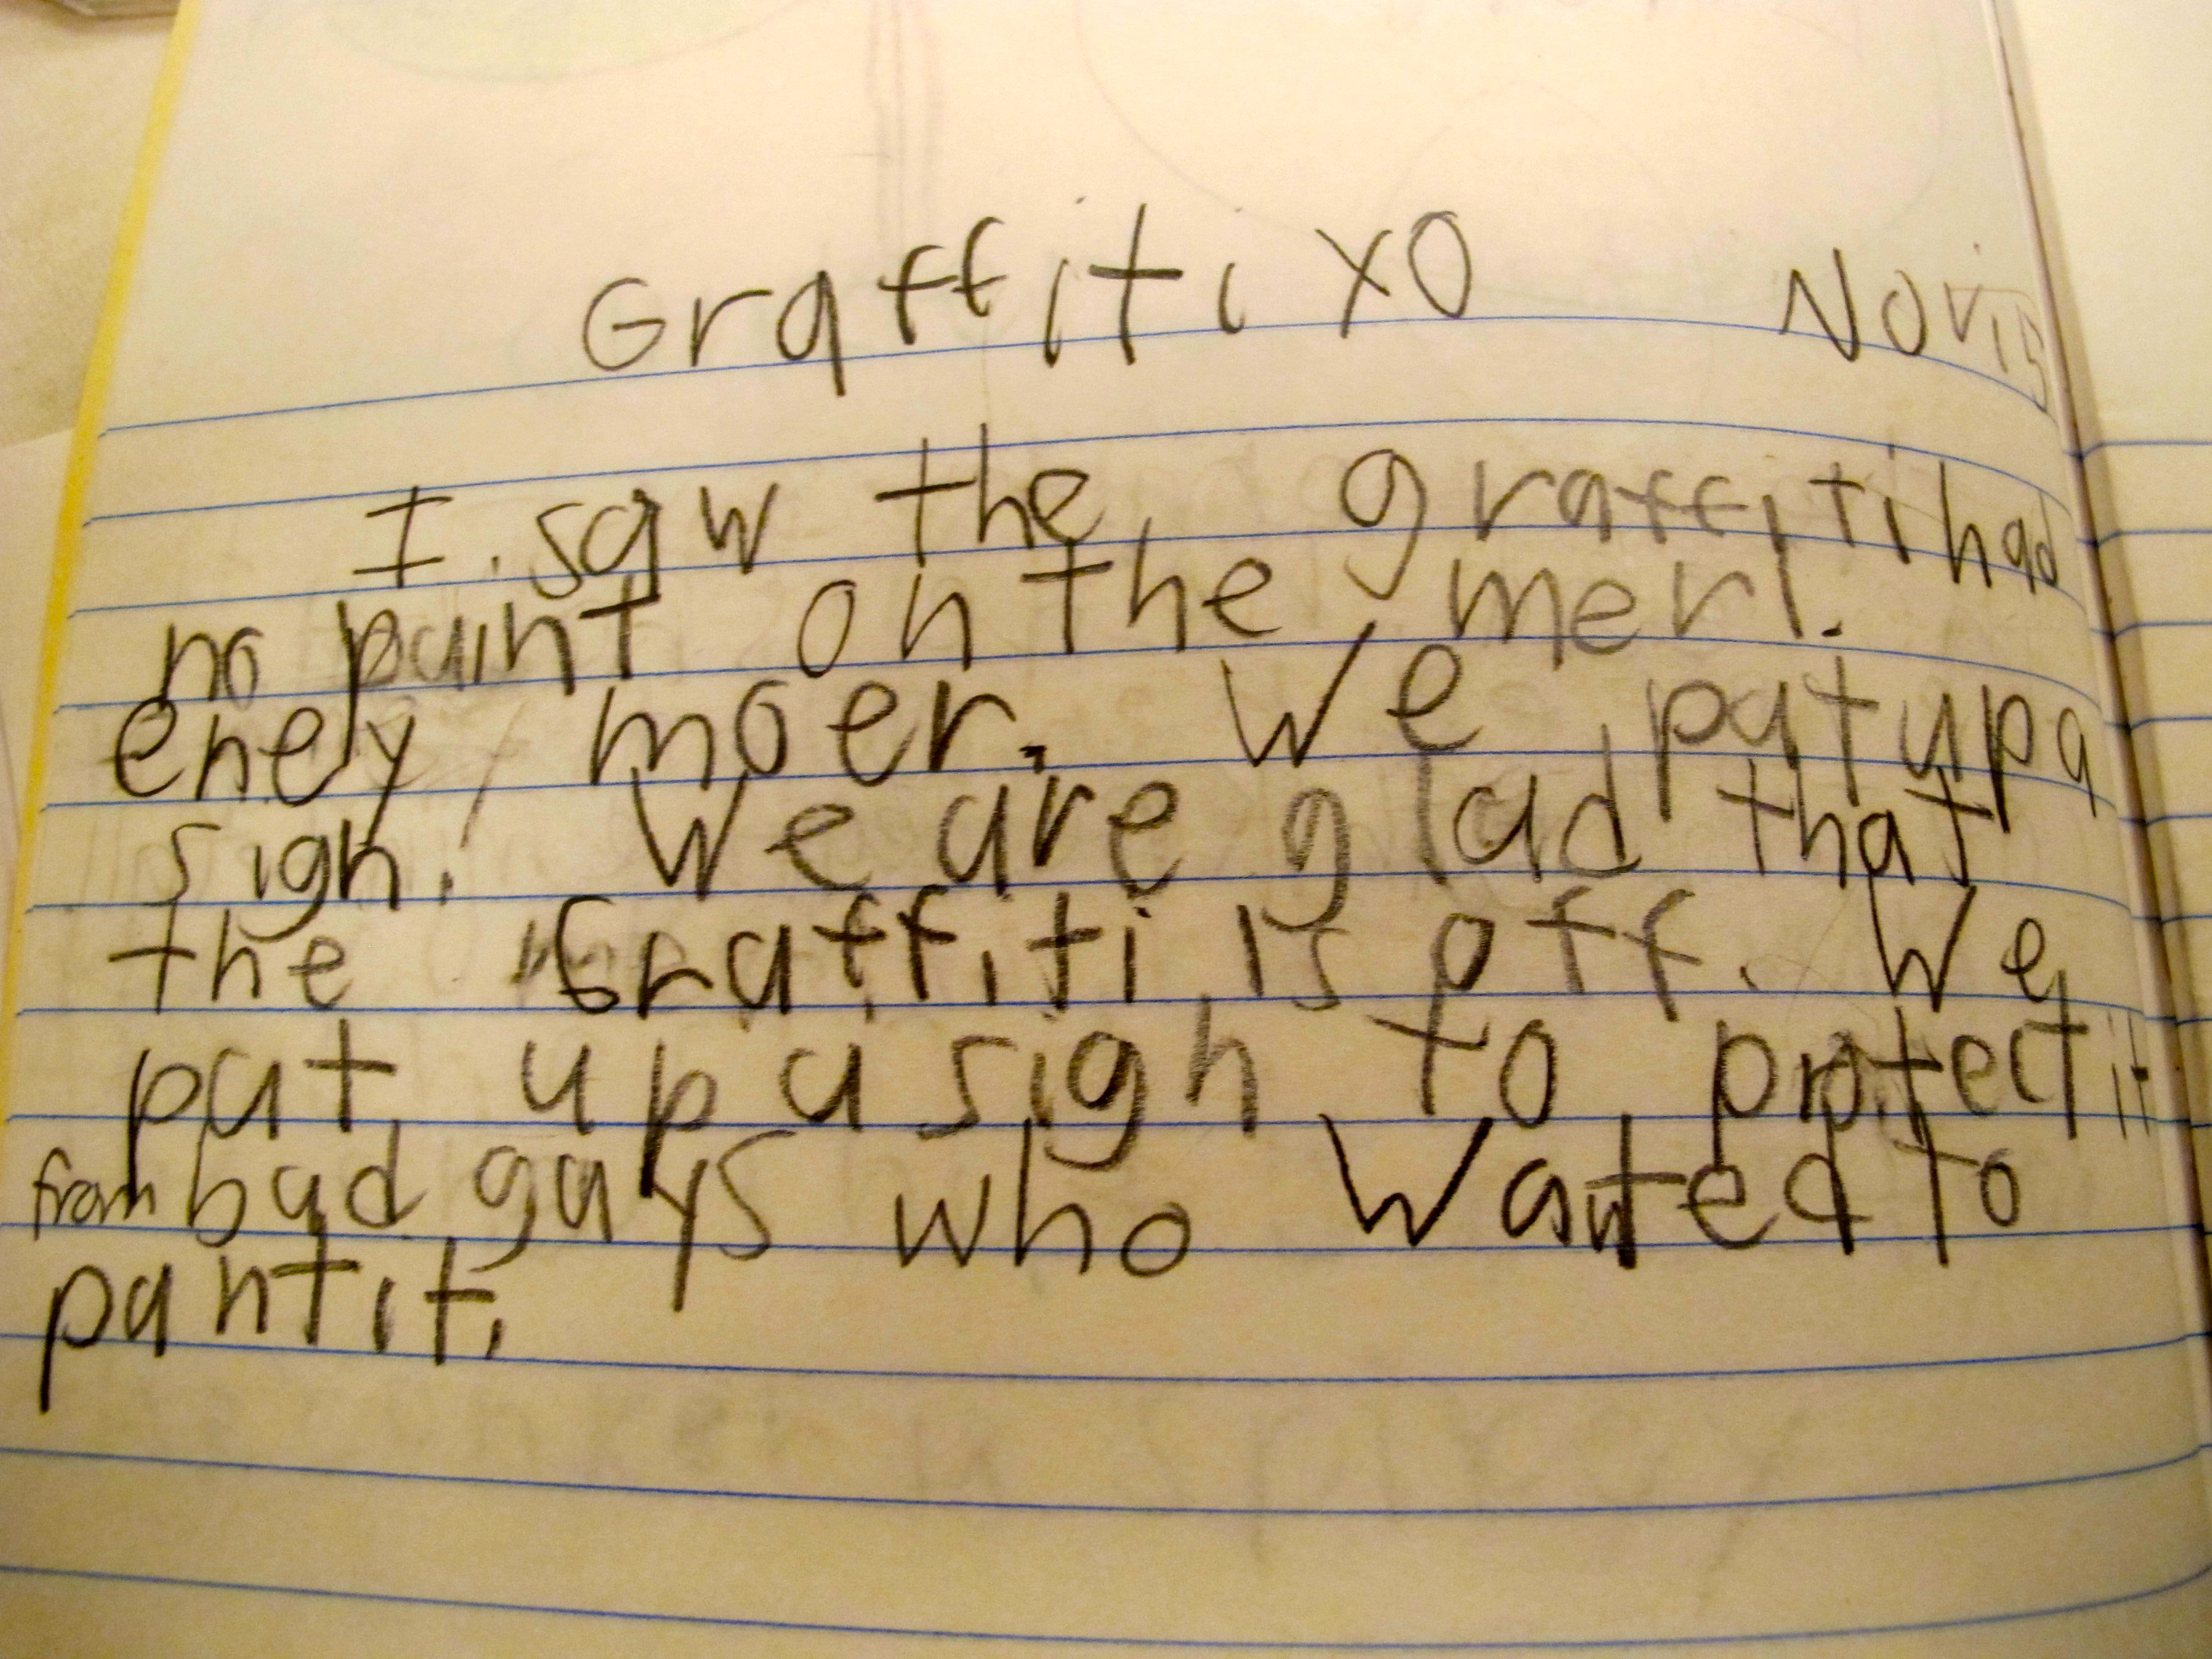 Graffiti XO Nov. 15
I saw the graffiti had
no paint on the merl.
enely moer. We put up a
sign. We are glad that
the Graffiti is off. We
put up a sign to protect it
from bad guys who Wanted to
pantit.